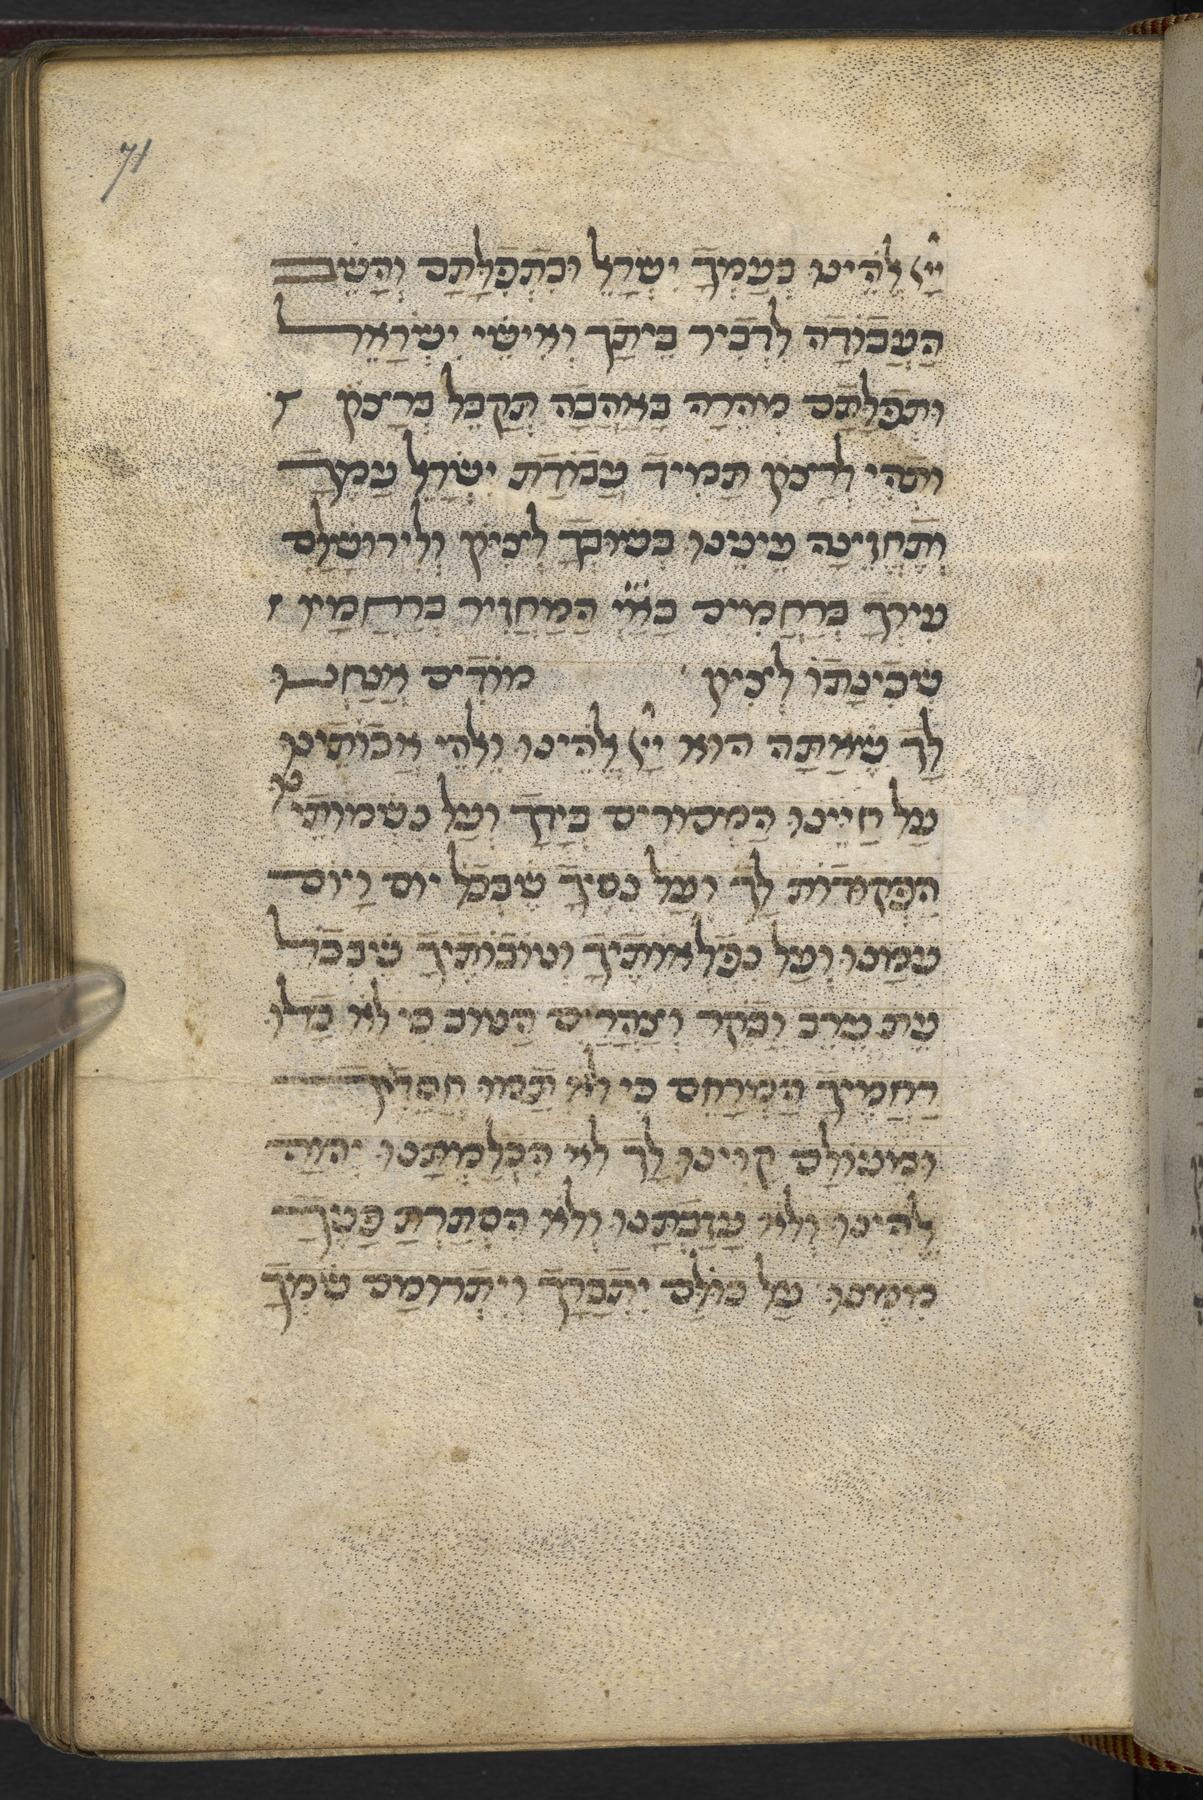 71
ייָ אלֵהֵינו בְעַמְךָ יִשְרָאֵל וּבִתְפִלָתָם וְהָשֵב
הָעֲבוֹדָה לִדְבִיר בֵיתֶךָ וְאִישֵי יִשְרָאֵל
וּתְפִלָתָם מְהֵרָה בְאַהֲבָה תְקַבֵל בְרָצוֹן
וּתְהִי לְרָצוֹן תָמִיד עֲבוֹדַת יִשְרָאֵל עַמֶךָ
וְתֶחֱזֶינָה עֵינֵינו בְשׁוּבְךָ לְצִיוֹן וְלִירוּשָלַם
עִירְךָ בְרַחֲמִים בָאַיְ הַמַחֲזִיר בְרַחֲמָיו
שְכִינָתוֹ לְצִיוֹן מוֹדִים אֲנַחְנוּ
לָךְ שֶאַתָה הוא ייָ אלֵהֵינו וֵאלֹהֵי אֲבוֹתֵינוּ
עַל חַיֵינו הַמְסוּרִים בְיָדֶךָ וְעַל נִשְמוֹתֵינוּ
הַפְקוּדוֹת לָךְ וְעַל נִסֶיךָ שֶבְכָל יוֹם וָיוֹם
עִמָנוּ וְעַל נִפְלְאוֹתֶיךָ וְטוֹבוֹתֶיךָ שֶבְכָל
עֵת עֶרֶב וָבֹקֶר וְצָהֳרָיִם הַטוֹב כִי לֹא כָלוּ
רַחֲמֶיךָ הַמְרַחֵם כִי לֹא תַמוּ חֲסָדֶיךָ
וּמֵעוֹלָם קִוִינוּ לָךְ לֹא הִכְלַמְתָנוּ יְהוָה
אלֵהֵינוּ וְלֹא עֲזַבְתָנוּ וְלֹא הִסְתַרְתָ פָנֶיךָ
מִמֶנוּ עַל כולָם יִתְבָרַךְ וְיִתְרוֹמַם שִמְךָ